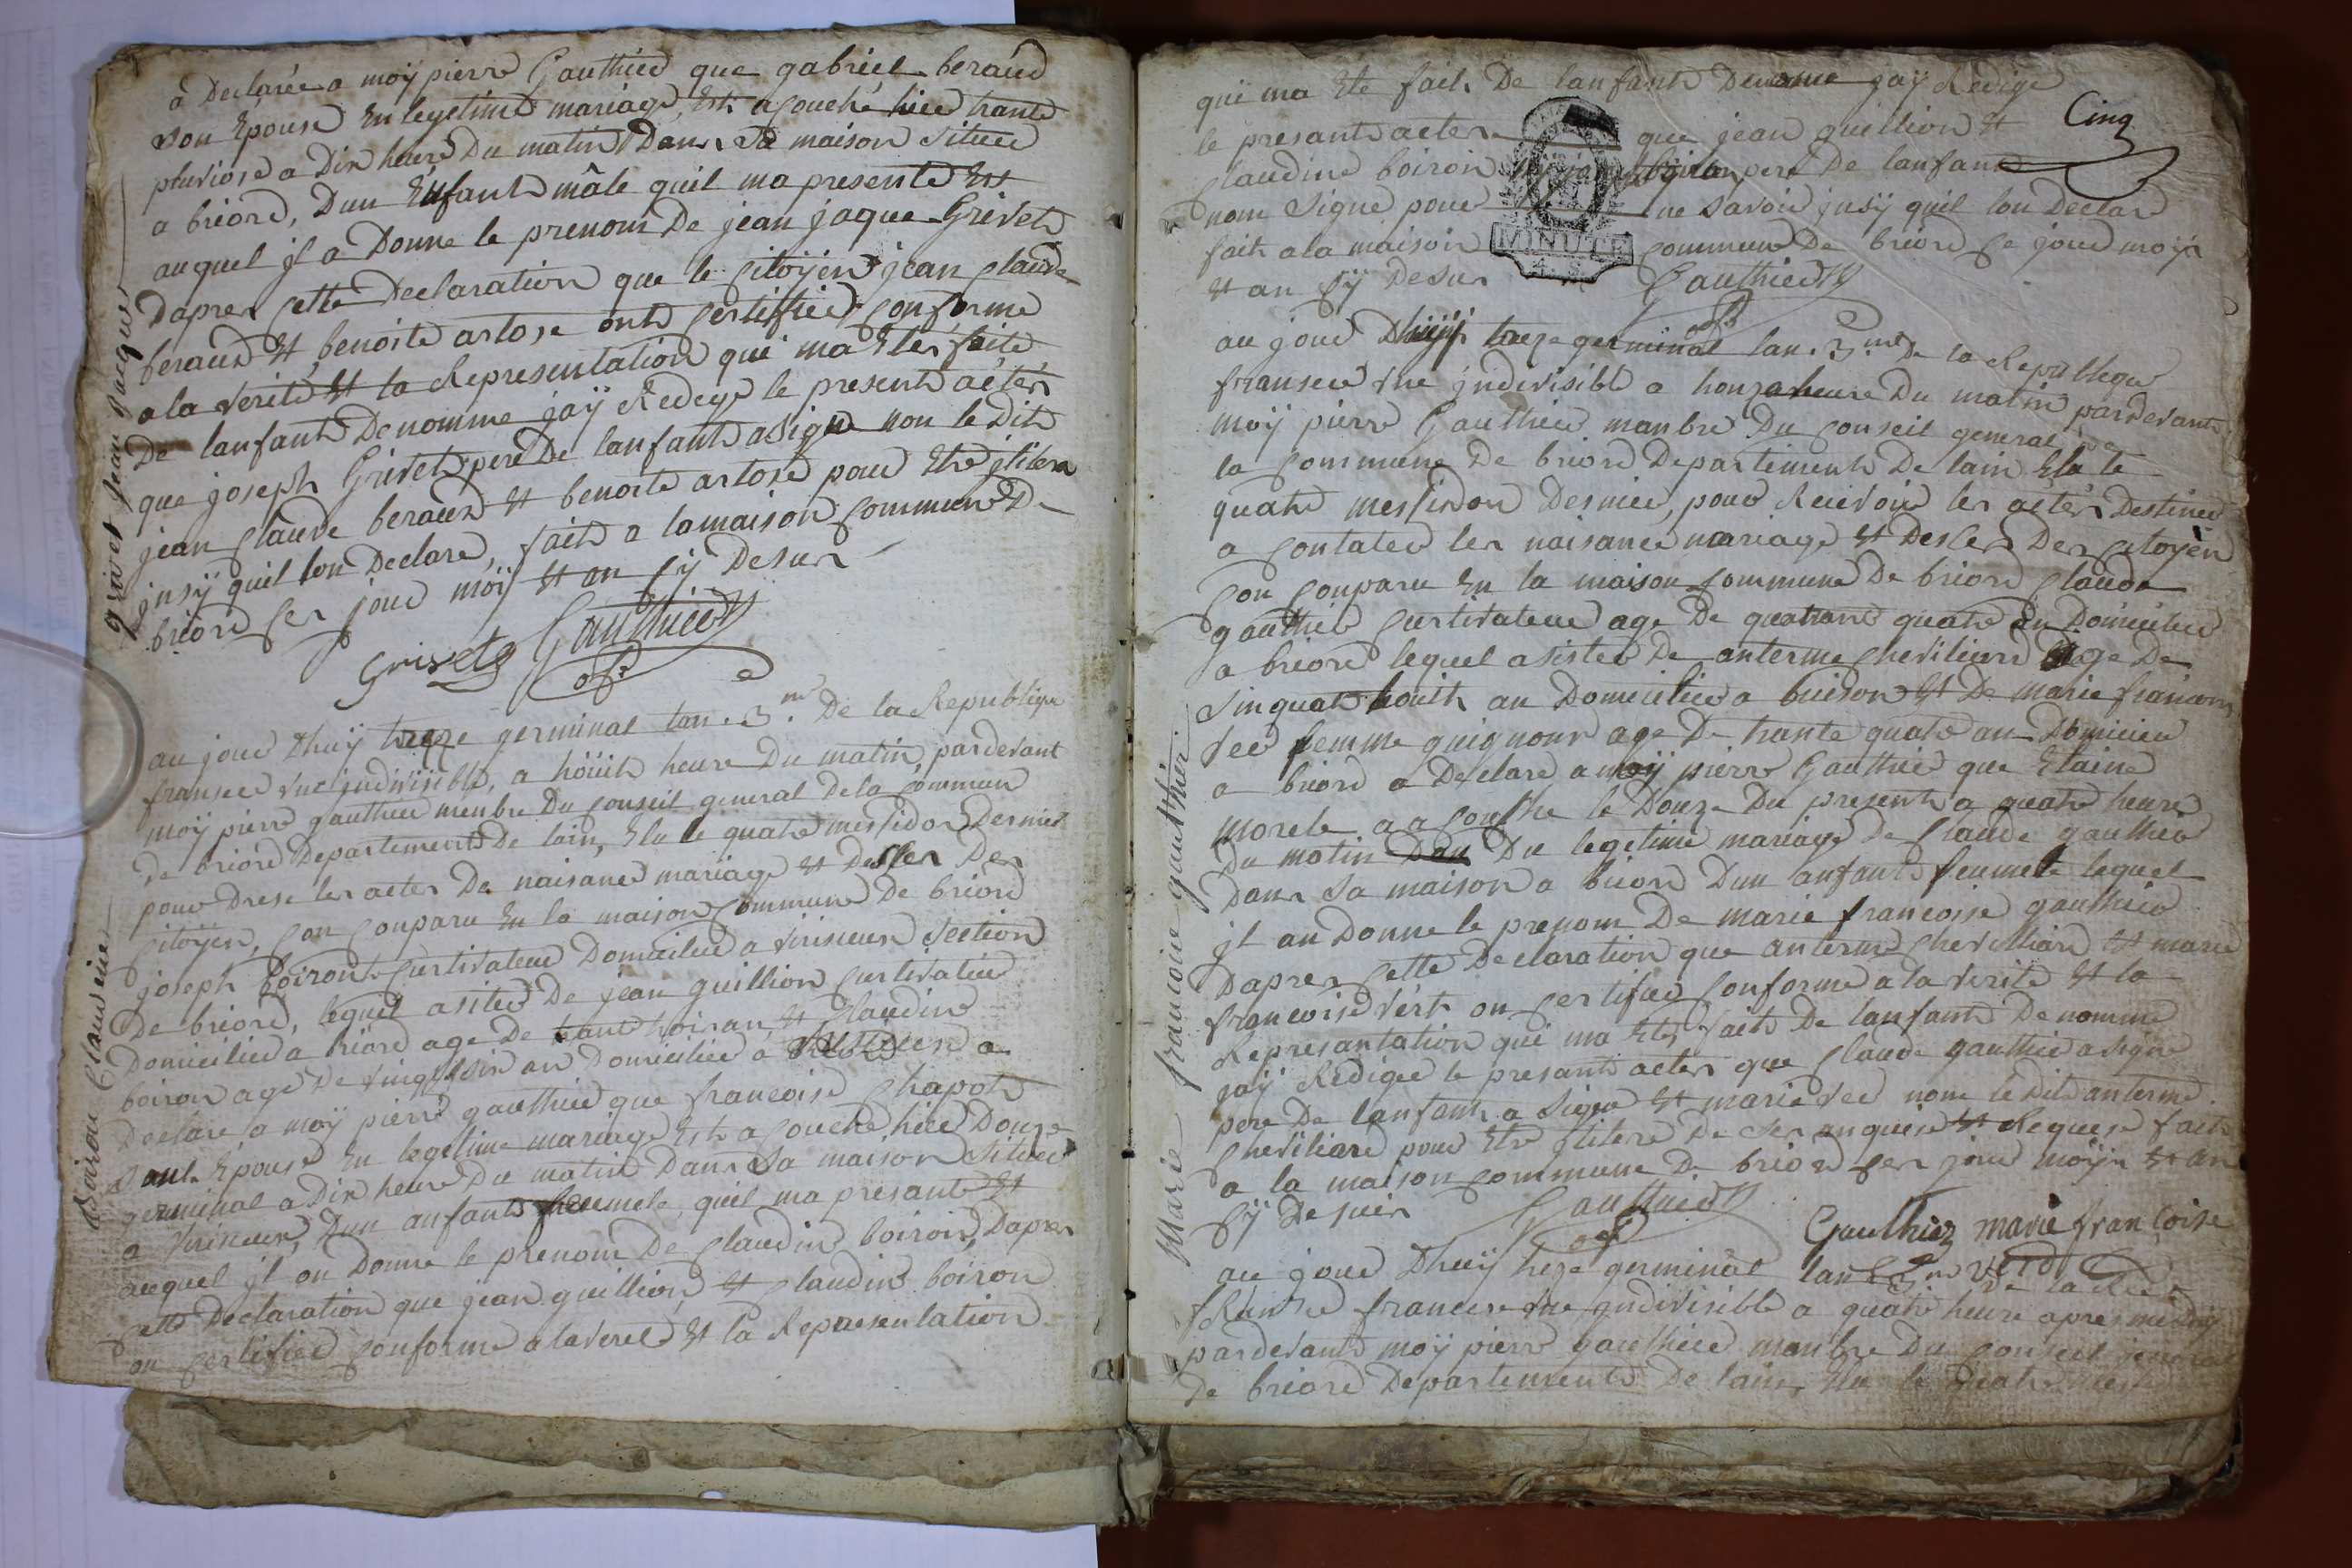 grivet jean jacque
a Declarée a moÿ pierre Gauthier que gabriel beraud
son Epouse En legetime mariage, Est acouché hier trante
pluviose a Dix heure Du matin Dans sa maison située
a briord, Dun Enfant mâle quil ma presenté Et
auquel jl a Donne le prenom De jean jaque Grivet
Dapres cette Declaration que le citoÿen jean claude
beraud Et benoite artose ont certifiee conforme
a la verité Et la Representation qui ma Eter faite
De lanfant Denomme jaÿ Redege le present acter
que joseph Grivet pere De lanfant a signe non le Dit
jean claude beraud Et benoite artose pour Etre jlitera
jnsÿ quil lon Declare, fait a la maison commune De
briord ser jour moÿ Et an sÿ Desur
Grivet Gauthier
of
Boiron Claudine
au jour Dhuÿ treze germinal lan .3.me De la Republique
fransee une jndivisible, a hôüit heure Du matin, pardevant
moÿ pierre gauthier menbre Du conseil general De la commun
De briord Departement De lain, Elu le quatre messidor Dernier
pour Drese les acter De naisance mariage Et Desser Der
citoÿen, son conparu En la maison commune De briord
joseph boiron curtivateur Domicilie a virisieux section
De briord, lequel asiter De jean quillion curtivateur
Domicilier a briord age De trant troisan, Et claudine
boiron age De vingt six an Domiciliee a a
Declare a moÿ pierre gauthier que francoise chapot
sont Epouse En legetime mariage Est a couche hier Douze
germinal a Dix heure Du matin Dans sa maison située
a virisieux, Dun anfant feumele, quil ma presanté Et
auquel jl on Donne le prenom De claudin boiron, Dapres
cette Declaration que jean quillion Et claudine boiron
on certifier conforme a la verité Et la Representation
Cinq
qui ma Ete fait De lanfant Denome jaÿ Redige
le presant acter que jean quillion Et
claudine boiron pere De lanfant
nom signe pour ne savoir jnsÿ quil lon Declare
fait a la maison commune De briord se jour moÿ
Et an sÿ Desur Gauthier
MINUTE
of
Marie francoise gauthier
au jour Dhuÿ treze germinal lan .3.me De la Republeque
fransee une jndivisible a honze heure Du matin pardevant
moÿ pierre Gauthier manbre Du conseil general De
la commune De briord Departement De lain Elu le
quatre messidor Dernier, pour Recevoir les acter Destiner
a contater les naisance mariage Et Desser Der citoÿen
son conparu En la maison commune De briord claude
gauthier curtivateur age De quarante quatre an Domicilier
a briord lequel asister De anterme chevilier age De
sinquat houit an Domicilier a briord Et De marie francoise
ver femme guignour age De trante quatre an Domicilier
a briord a Declare a moÿ pierre Gauthier que Elaine
morele a acouche le Douze Du present a quatre heure
Du matin Du legetime mariage De claude gauthier
Dans sa maison a briord Dun anfant feumele lequel
jl an Donne le prenom De marie francoise gauthier
Dapres cette Declaration que anterme chevilliard Et marie
francoise vert on certifier conforme a la verite Et la
Representation qui ma Ete fait De lanfant Denomme
jaÿ Redigee le presant acter que claude gauthier a signe
pere De lanfant a signe Et marie ver nom le Dit anterme
cheviliard pour Etre jlitere De ser anquise Et Requese fait
a la maison commune De briord ser jour moÿ Et an
sÿ Desur Gauthier Gauthier marie francoise
of verd
au jour Dhuÿ treze germinal lan 3me De la Re
fransee une jndivisible a quatre heure apres midÿ
pardevant moÿ pierre gauthier manbre Du conseil general
De briord Departement De lain, Elu le quatre